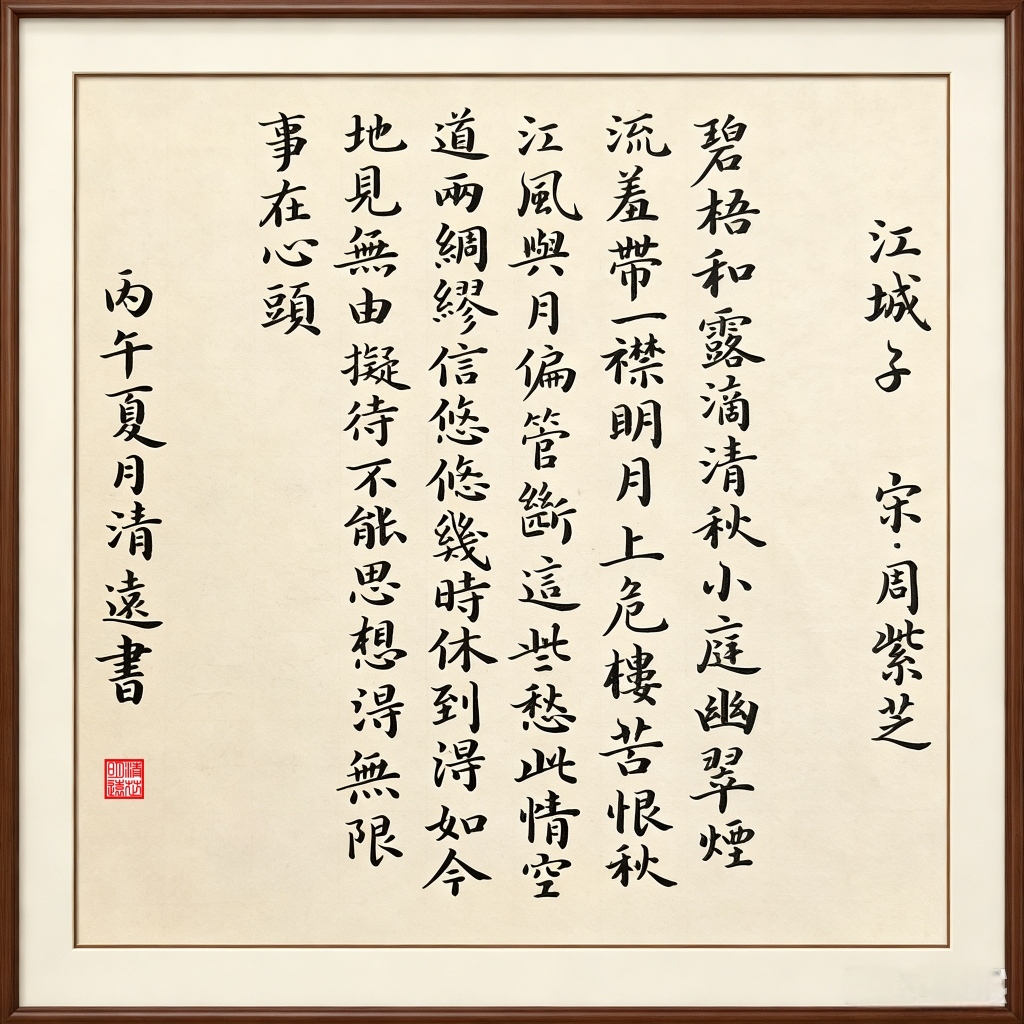 江城子　宋·周紫芝
碧梧和露滴清秋小庭幽翠煙
流羞帶一襟明月上危樓苦恨秋
江風與月偏管斷這些愁此情空
道兩綢繆信悠悠幾時休到得如今
地見無由擬待不能思想得無限
事在心頭
丙午夏月清遠書